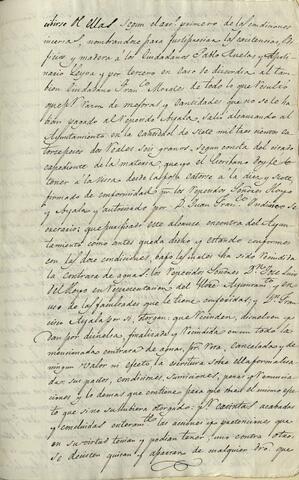 Segun el art.º primero de las condiciones
incersas, nombrandose para justipreciar las existencias, Ed-
ficio y madera a los Ciudadanos Pablo Ruelas y Apoli-
nario Leyva y por tercero en caso de discordia al tam-
bien Ciudadano Fran.co Morales: de todo lo que resultó
que p.r razon de mejoras y cantidades que no se le ha-
bian pagado al Ayala, salio alcansando al
Ayuntamiento en la cantidad de siete mil seis cien
pesos dos reales seis granos: segun consta del citado
expediente de la materia, que yo el Escribano doy fe
tener a la vista desde la foja catorce a la diez y siete,
firmado de conformidad p.r los Señores Hoyo
y Ayala y autorizado por D. Juan Fran.co
que justificado este alcance en contra del Ayun-
tamiento como antes queda dicho y estando conformes
con las doce condiciones, bajo las cuales ha sido rescindida
la contrata de aguas; los Señores D.n José Luis
del Hoyo en representacion del Ilustre Ayuntam.to y en
uso de las facultades que le tiene conferidas; y D. Fran-
cisco Ayala por si, Otorgan: que rescinden, disuelven y
dan por disuelta, finalizada y rescindida en un todo la
mencionada contrata de aguas, por rota, cancelada y de
ningun valor ni efecto la escritura sobre ella formaliza-
da: sus pactos, condiciones, sumisiones, penas y renuncia-
ciones y lo demas que contiene para que obre el mismo efec-
to que si no se hubiera otorgado: p.r cuentas acabadas
y concluidas enteramente las acciones y pretenciones que
en su virtud tenian y podian tener una contra otra:
se desisten quitan y apartan de cualquier dro. que